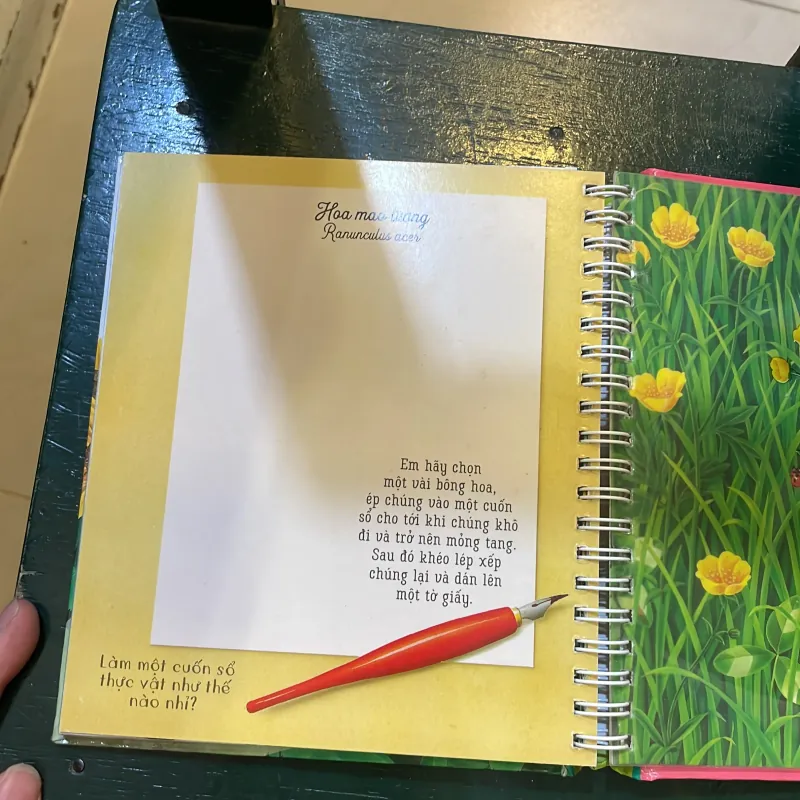 Hoa mao lương
Ranunculus acer
Em hãy chọn
một vài bông hoa,
ép chúng vào một cuốn
sổ cho tới khi chúng khô
đi và trở nên mỏng tang.
Sau đó khéo lép xếp
chúng lại và dán lên
một tờ giấy.
Làm một cuốn sổ
thực vật như thế
nào nhỉ?